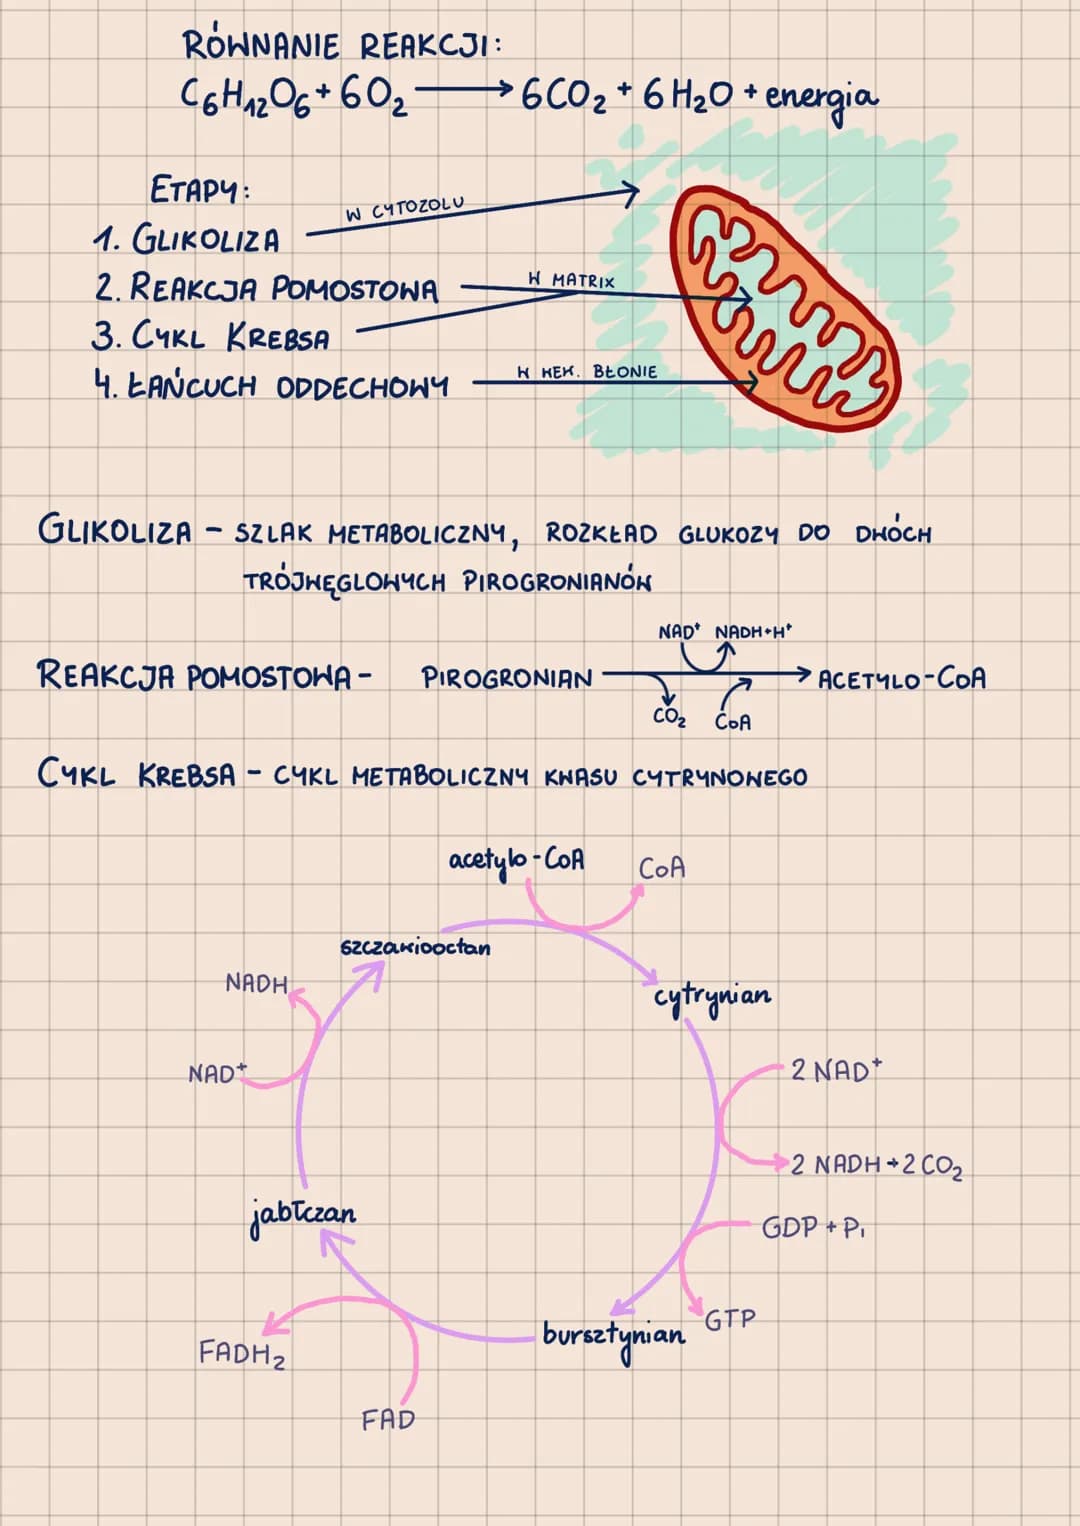 RÓWNANIE REAKCJI:
C₆H₁₂O₆ + 6O₂ → 6CO₂ + 6H₂O + energia
ETAPY:
1. GLIKOLIZA
W CYTOZOLU
2. REAKCJA POMOSTOWA
W MATRIX
3. CYKL KREBSA
4. ŁAŃCUCH ODDECHOWY
W WEW. BŁONIE
GLIKOLIZA - SZLAK METABOLICZNY, ROZKŁAD GLUKOZY DO DWÓCH
TRÓJWĘGLOWYCH PIROGRONIANÓW
NAD⁺ NADH+H⁺
REAKCJA POMOSTOWA - PIROGRONIAN → ACETYLO-CoA
CO₂ CoA
CYKL KREBSA - CYKL METABOLICZNY KWASU CYTRYNOWEGO
acetylo-CoA
CoA
szczawiooctan
NADH
cytrynian
NAD⁺
2 NAD⁺
2 NADH + 2 CO₂
jabłczan
GDP + Pi
GTP
bursztynian
FADH₂
FAD